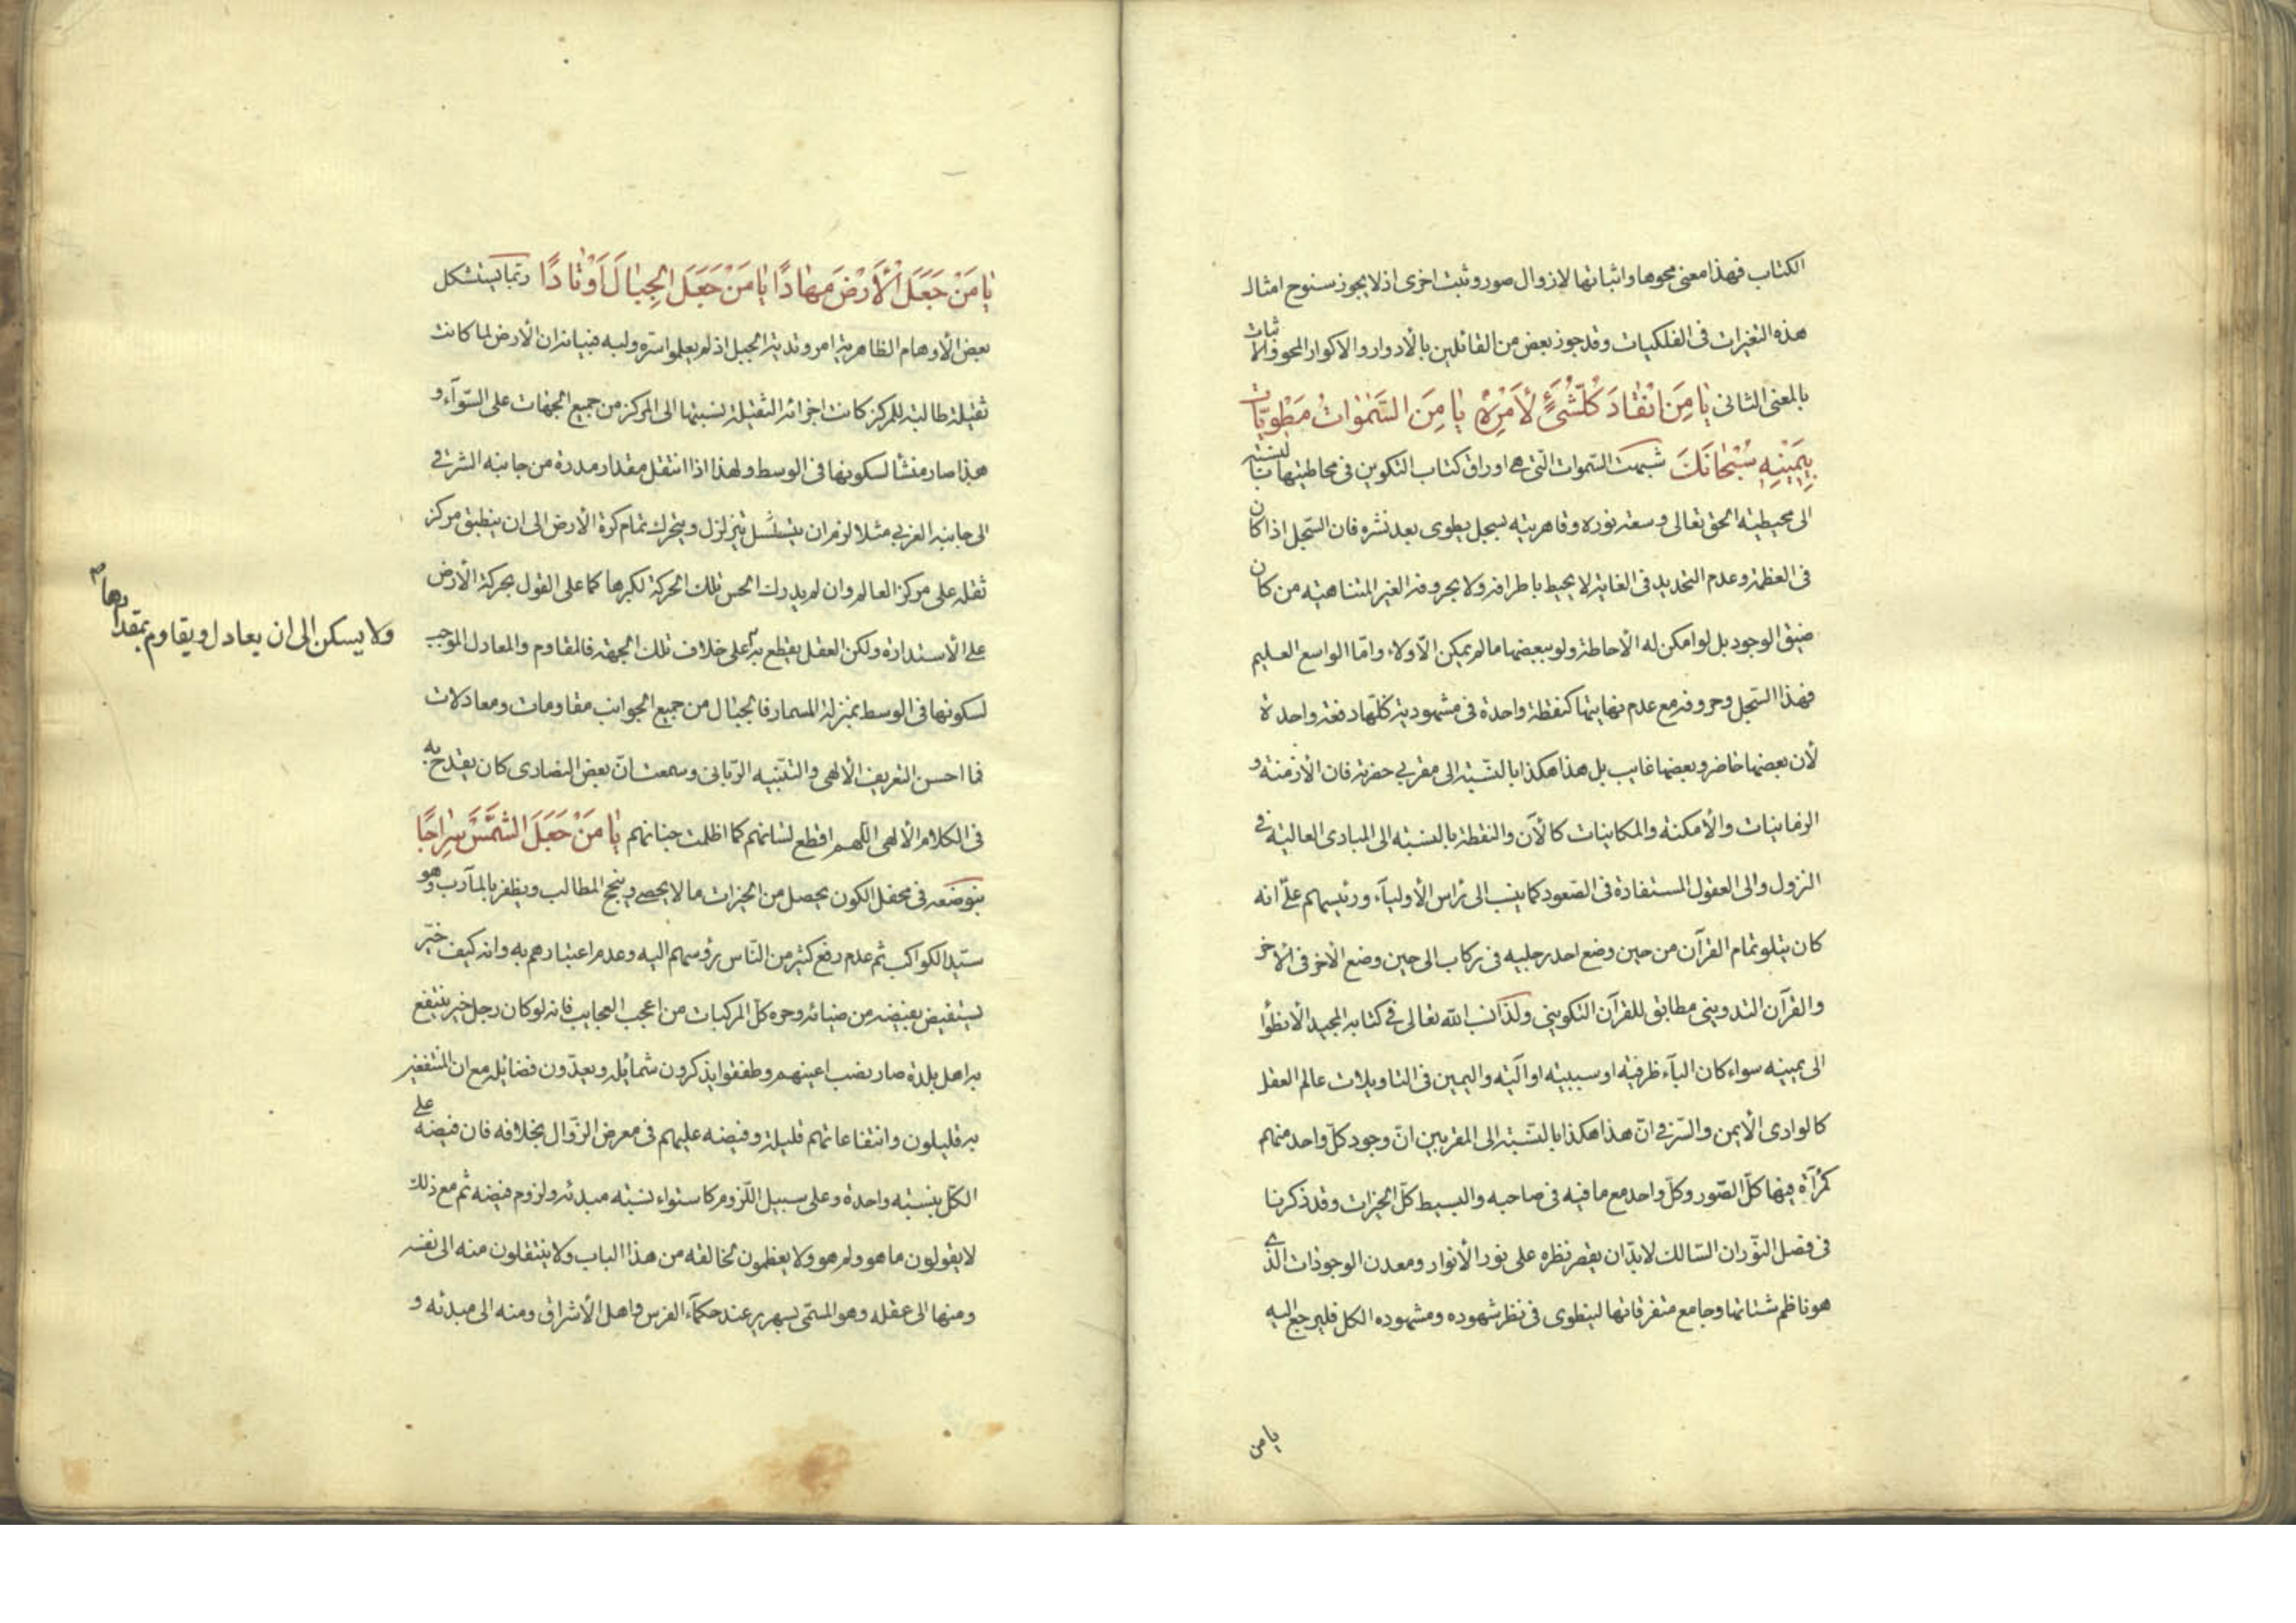 الكتاب فهذا معنى محوها واثباتها لازوال صور وثبت اخرى اذ لا يجوز سنوح امثال
هذه التغيرات فى الفلكيات وقد جوز بعض من القائلين بالأدوار والاكوار المحو والاثبات
بالمعنى الثانى يا مَن انْقادَ كُلُّ شَىْءٍ لأَمْرِهْ يا مَن السَّمٰواتُ مَطْوِيّاتٌ
بِيَمِينِهِ سُبْحانَكَ شبهت السّموات الّتى هى اوراق كتاب التكوين فى محاطيتها بالنسبة
الى محيطية الحق تعالى وسعة نوره وقاهريته بسجل يطوى بعد نشره فان السّجل اذا كان
فى العظمة وعدم التحديد فى الغاية لا يحيط باطرافه ولا بحروفه الغير المتناهية من كان
ضيق الوجود بل لو امكن له الأحاطة ولو ببعضها ما لم يمكن الّا ولاء وامّا الواسع العليم
فهذا السّجل وحروفه مع عدم نهايتها كنقطة واحدة فى مشهوديته كلّها دفعة واحدة
لأن بعضها حاضر وبعضها غايب بل هذا هكذا بالنّسبة الى مقربى حضرته فان الأزمنة و
الزمانيات والأمكنة والمكانيات كالآن والنقطة بالنسبة الى المبادى العالية فى
النزول والى العقول المستفادة فى الصّعود كما ينسب الى راس الأولياء ورئيسهم علىّ انه
كان يتلو تمام القرآن من حين وضع احد رجليه فى ركاب الى حين وضع الاخر فى الاخر
والقرآن التدوينى مطابق للقرآن التكوينى ولذا نسب الله تعالى فى كتابه المجيد الأنطواء
الى يمينه سواء كان الباء ظرفية او سببية او آلية واليمين فى التاويلات عالم العقل
كالوادى الأيمن والسّر فى انّ هذا هكذا بالنّسبة الى المقربين انّ وجود كلّ واحد منهم
كمرآة فيها كلّ الصّور وكلّ واحد مع ما فيه فى صاحبه والبسيط كلّ الخيرات وقد ذكرنا
فى فصل النّور ان السّالك لا بدّ ان يقصر نظره على نور الأنوار ومعدن الوجودات الّذى
هو ناظم شتاتها وجامع متفرقاتها لينطوى فى نظر شهوده ومشهوده الكل فليرجع اليه
يا من
يا مَنْ جَعَلَ الْأَرْضَ مِهادًا يا مَنْ جَعَلَ الْجِبالَ اَوْتادًا ربّما يستشكل
بعض الأوهام الظاهرية امر وتدية الجبل اذ لم يعلموا سرّه ولبه فبيانه ان الأرض لما كانت
ثقيلة طالبة للمركز كانت اجزائه الثقيلة نسبتها الى المركز من جميع الجهات على السّواء و
هذا صار منشأ لسكونها فى الوسط ولهذا اذا انتقل مقدار مدرة من جانبه الشرقى
الى جانبه الغربى مثلا لزم ان يتسلسل يتزلزل ويتحرك تمام كرة الأرض الى ان ينطبق مركز
ثقله على مركز العالم وان لم يدرك الحس تلك الحركة لكبرها كما على القول بحركة الأرض
على الأستدارة ولكن العقل يقطع به على خلاف تلك الجهة فالمقاوم والمعادل الموجب
ولا يسكن الى ان يعادل ويقاوم بمقدارها
لسكونها فى الوسط بمنزلة المسمار فالجبال من جميع الجوانب مقاومات ومعادلات
فما احسن التعريف الألهى والتّنبيه الرّبانى وسمعت انّ بعض النصارى كان يقدح به
فى الكلام الألهى اللّهم اقطع لسانهم كما اظلمت جنانهم يا مَنْ جَعَلَ الشَّمْسَ سِراجًا
بنوره فى محفل الكون يحصل من الخيرات ما لا يحصى وينجح المطالب ويظفر بالمآرب وهو
سيّد الكواكب ثم عدم رفع كثير من النّاس رؤسهم اليه وعدم اعتبارهم به وانه كيف خيّر
يستفيض بفيضه من ضيائه وحره كلّ المركبات من اعجب العجايب فانه لو كان رجل خير ينتفع
به اهل بلدة صار نصب اعينهم وطفقوا يذكرون شمائله ويعدّون فضائله مع ان المنتفعين
به قليلون وانتفاعاتهم قليلة وفيضه عليهم فى معرض الزّوال بخلافه فان فيضه على
الكلّ بنسبة واحدة وعلى سبيل اللّزوم كاستواء نسبة مبدئه ولزوم فيضه ثم مع ذلك
لا يقولون ما هو ولم هو ولا يعظمون لخالقه من هذا الباب ولا ينتقلون منه الى نفسه
ومنها الى عقله وهو المسمّى بسهرير عند حكماء الفرس واهل الأشراق ومنه الى مبدئه و